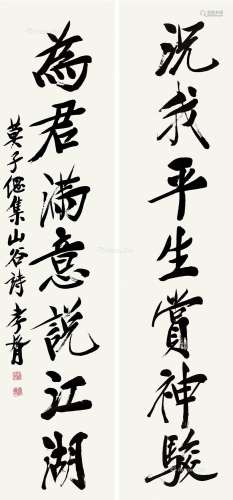 況我平生賞神駿
為君滿意說江湖
莫子偲集山谷詩 孝胥